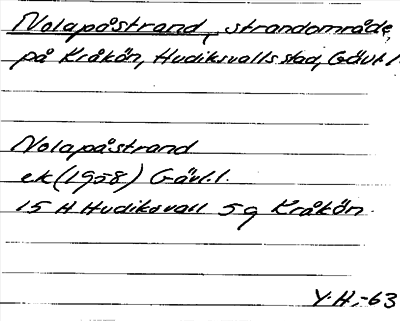 Nolapåstrand, strandområde,
på Kråkön, Hudiksvalls stad, Gävl.l.
Nolapåstrand
ek (1958) Gävl.l.
15 H Hudiksvall 5g Kråkön.
Y.H.-63